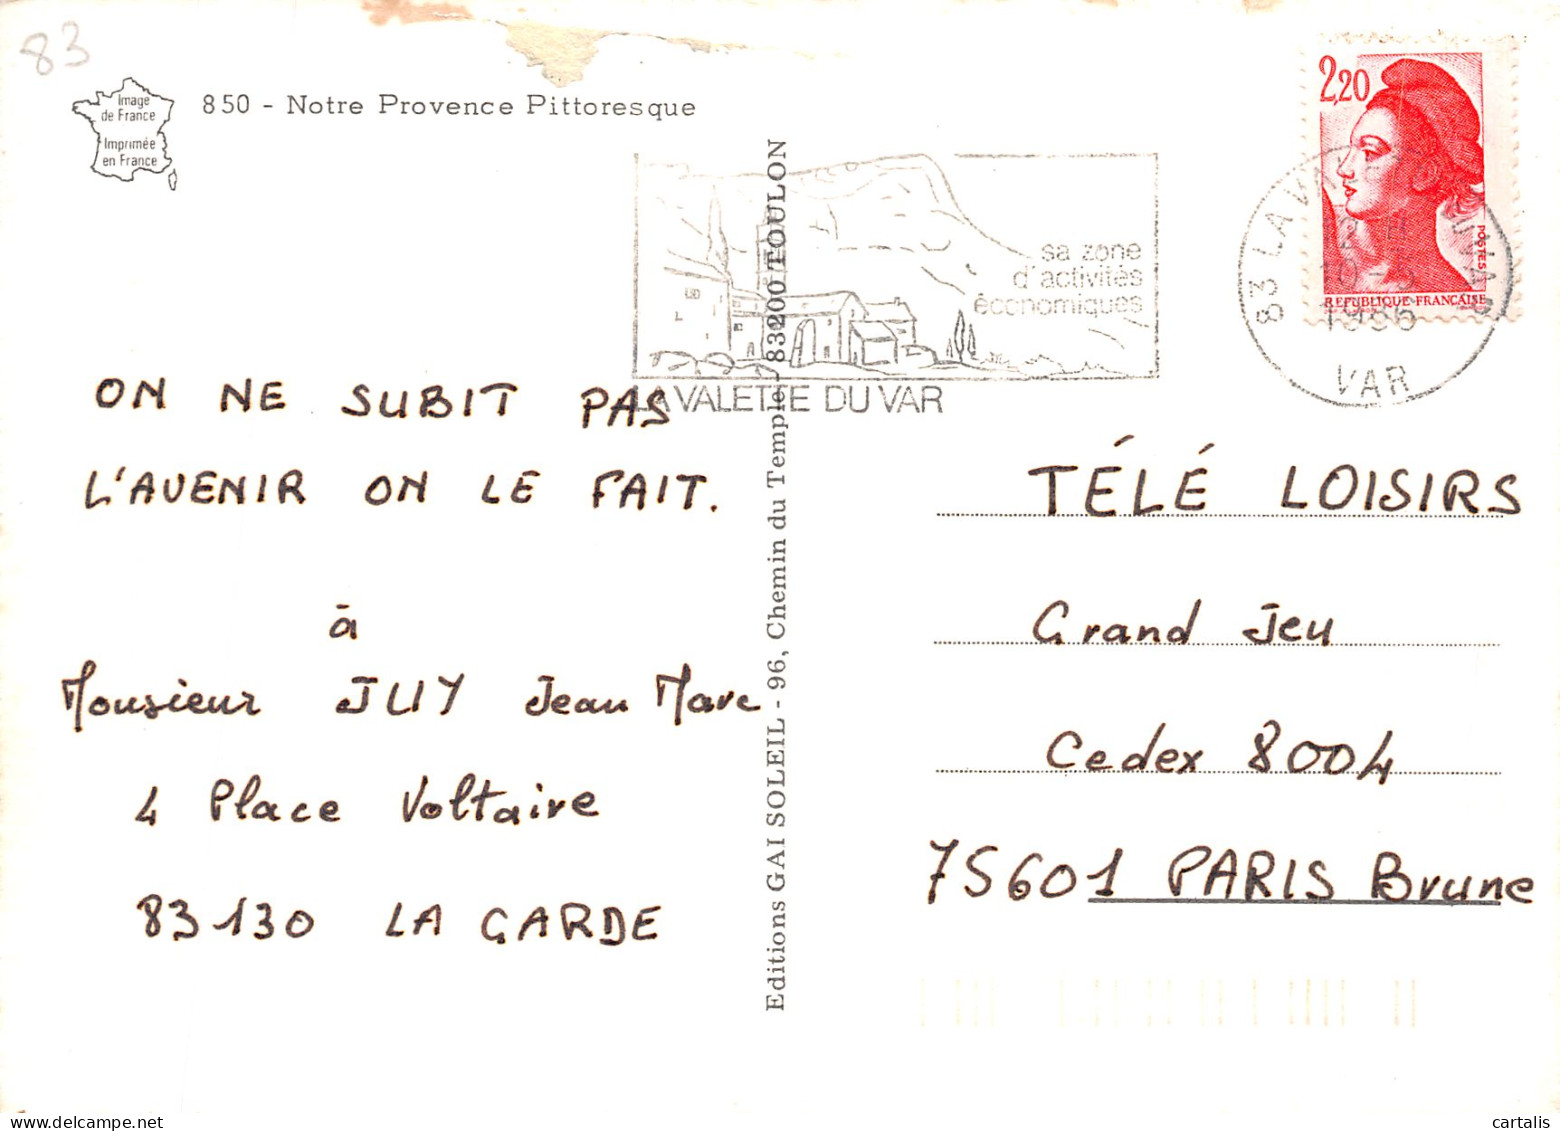 83
Image
de France
Imprimée
en France
850 - Notre Provence Pittoresque
2,20
POSTES
REPUBLIQUE FRANÇAISE
sa zone
d'activités
économiques
LA VALETTE DU VAR
83 LA VALETTE DU VAR
10 - 5
1986
VAR
ON NE SUBIT PAS
L'AVENIR ON LE FAIT.
à
Monsieur JUY Jean Marc
4 Place Voltaire
83130 LA GARDE
Editions GAI SOLEIL - 96, Chemin du Temple - 83200 TOULON
TÉLÉ LOISIRS
Grand Jeu
Cedex 8004
75601 PARIS Brune
cartalis